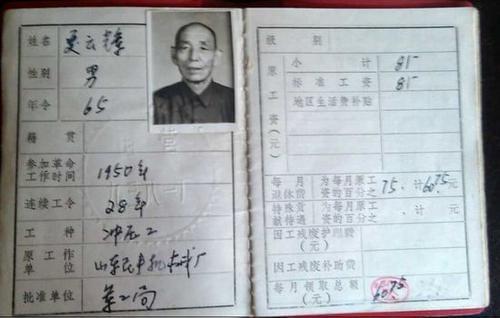 姓名 夏云锋
性别 男
年令 65
籍贯
参加革命
工作时间 1950年
连续工令 28年
工种 冲床工
原工作
单位
批准单位
级别
原工资(元)
小计 81-
标准工资 81-
地区生活费补贴
每月 为每月原工
退休费 资的百分之 75. 计60.75元
特殊贡 为每月原工
献待遇 资的百分之 计 元
因工残废护理费
(元)
因工残废补助费
(元)
每月领取总额
(元) 60.75